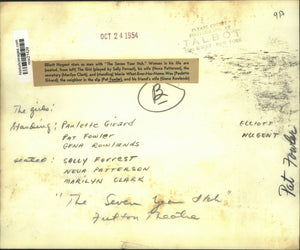 OCT 24 1954
9A
TALBOT
Elliott Nugent stars as man with "The Seven Year Itch." Women in his life are
seated, from left; The Girl (played by Sally Forrest), his wife (Neva Patterson), his
secretary (Marilyn Clark), and (standing) Marie What-Ever-Her-Name-Was (Paulette
Girard), the neighbor in the sky (Pat Fowler), and his friend's wife (Gena Rowlands).
B
The girls:
Standing: Paulette Girard
Pat Fowler
Gena Rowlands
Elliott
Nugent
seated: Sally Forrest
Neva Patterson
Marilyn Clark
"The Seven Year Itch"
Fulton Theatre
Pat Fowler